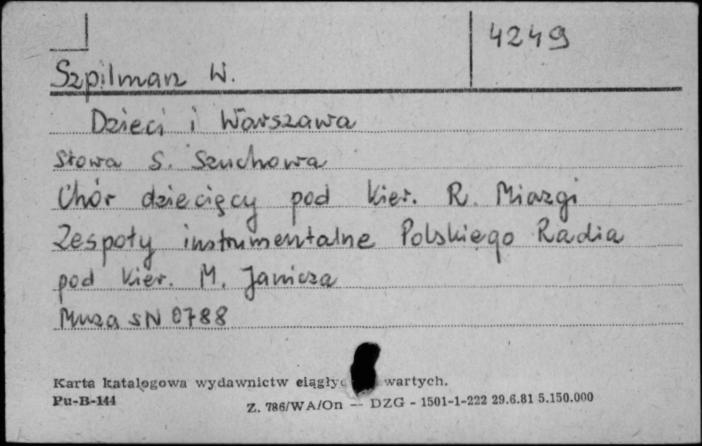 4249
Szpilman W.
Dzieci i Warszawa
słowa S. Szuchowa
Chór dziecięcy pod kier. R. Miazgi
Zespoły instrumentalne Polskiego Radia
pod kier. M. Janicza
Muza SN 0788
Karta katalogowa wydawnictw ciągłyc wartych.
Pu-B-144
Z. 786/WA/On — DZG - 1501-1-222 29.6.81 5.150.000